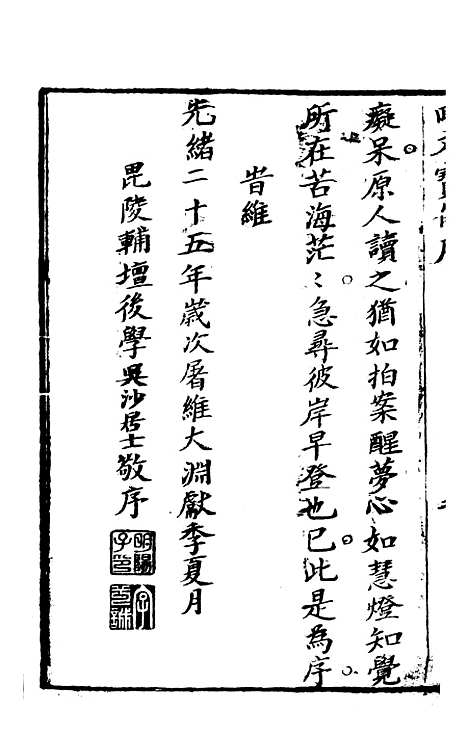 癡呆原人讀之猶如拍案醒夢心如慧燈知覺
所在苦海茫〻急尋彼岸早登也已此是為序
旹維
光緒二十五年歲次屠維大淵獻季夏月
毘陵輔壇後學吳沙居士敬序